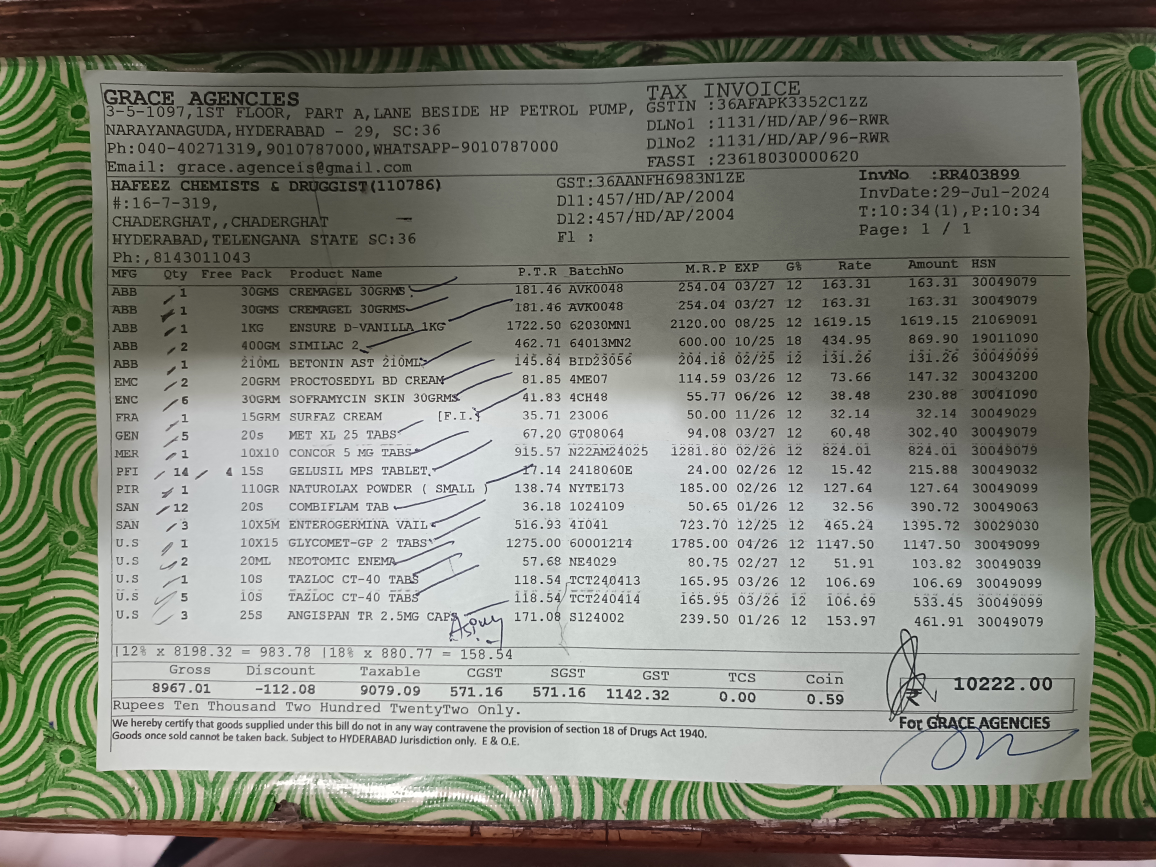 GRACE AGENCIES
3-5-1097,1ST FLOOR, PART A,LANE BESIDE HP PETROL PUMP,
NARAYANAGUDA,HYDERABAD - 29, SC:36
Ph:040-40271319,9010787000,WHATSAPP-9010787000
Email: grace.agenceis@gmail.com
TAX INVOICE
GSTIN :36AFAPK3352C1ZZ
DLNo1 :1131/HD/AP/96-RWR
DlNo2 :1131/HD/AP/96-RWR
FASSI :23618030000620
HAFEEZ CHEMISTS & DRUGGIST(110786)
#:16-7-319,
CHADERGHAT,,CHADERGHAT
HYDERABAD,TELENGANA STATE SC:36
Ph:,8143011043
GST:36AANFH6983N1ZE
Dl1:457/HD/AP/2004
Dl2:457/HD/AP/2004
Fl :
InvNo :RR403899
InvDate:29-Jul-2024
T:10:34(1),P:10:34
Page: 1 / 1
MFG Qty Free Pack Product Name P.T.R BatchNo M.R.P EXP G% Rate Amount HSN
ABB 1 30GMS CREMAGEL 30GRMS 181.46 AVK0048 254.04 03/27 12 163.31 163.31 30049079
ABB 1 30GMS CREMAGEL 30GRMS 181.46 AVK0048 254.04 03/27 12 163.31 163.31 30049079
ABB 1 1KG ENSURE D-VANILLA 1KG 1722.50 62030MN1 2120.00 08/25 12 1619.15 1619.15 21069091
ABB 2 400GM SIMILAC 2 462.71 64013MN2 600.00 10/25 18 434.95 869.90 19011090
ABB 1 210ML BETONIN AST 210ML 145.84 BID23056 204.18 02/25 12 131.26 131.26 30049099
EMC 2 20GRM PROCTOSEDYL BD CREAM 81.85 4ME07 114.59 03/26 12 73.66 147.32 30043200
ENC 6 30GRM SOFRAMYCIN SKIN 30GRMS 41.83 4CH48 55.77 06/26 12 38.48 230.88 30041090
FRA 1 15GRM SURFAZ CREAM [F.I.] 35.71 23006 50.00 11/26 12 32.14 32.14 30049029
GEN 5 20s MET XL 25 TABS 67.20 GT08064 94.08 03/27 12 60.48 302.40 30049079
MER 1 10X10 CONCOR 5 MG TABS 915.57 N22AM24025 1281.80 02/26 12 824.01 824.01 30049079
PFI 14 4 15S GELUSIL MPS TABLET. 17.14 2418060E 24.00 02/26 12 15.42 215.88 30049032
PIR 1 110GR NATUROLAX POWDER ( SMALL ) 138.74 NYTE173 185.00 02/26 12 127.64 127.64 30049099
SAN 12 20S COMBIFLAM TAB 36.18 1024109 50.65 01/26 12 32.56 390.72 30049063
SAN 3 10X5M ENTEROGERMINA VAIL 516.93 4I041 723.70 12/25 12 465.24 1395.72 30029030
U.S 1 10X15 GLYCOMET-GP 2 TABS 1275.00 60001214 1785.00 04/26 12 1147.50 1147.50 30049099
U.S 2 20ML NEOTOMIC ENEMA 57.68 NE4029 80.75 02/27 12 51.91 103.82 30049039
U.S 1 10S TAZLOC CT-40 TABS 118.54 TCT240413 165.95 03/26 12 106.69 106.69 30049099
U.S 5 10S TAZLOC CT-40 TABS 118.54 TCT240414 165.95 03/26 12 106.69 533.45 30049099
U.S 3 25S ANGISPAN TR 2.5MG CAPS 171.08 S124002 239.50 01/26 12 153.97 461.91 30049079
|12% x 8198.32 = 983.78 |18% x 880.77 = 158.54
Gross Discount Taxable CGST SGST GST TCS Coin
8967.01 -112.08 9079.09 571.16 571.16 1142.32 0.00 0.59
₹ 10222.00
Rupees Ten Thousand Two Hundred TwentyTwo Only.
We hereby certify that goods supplied under this bill do not in any way contravene the provision of section 18 of Drugs Act 1940.
Goods once sold cannot be taken back. Subject to HYDERABAD Jurisdiction only. E & O.E.
For GRACE AGENCIES